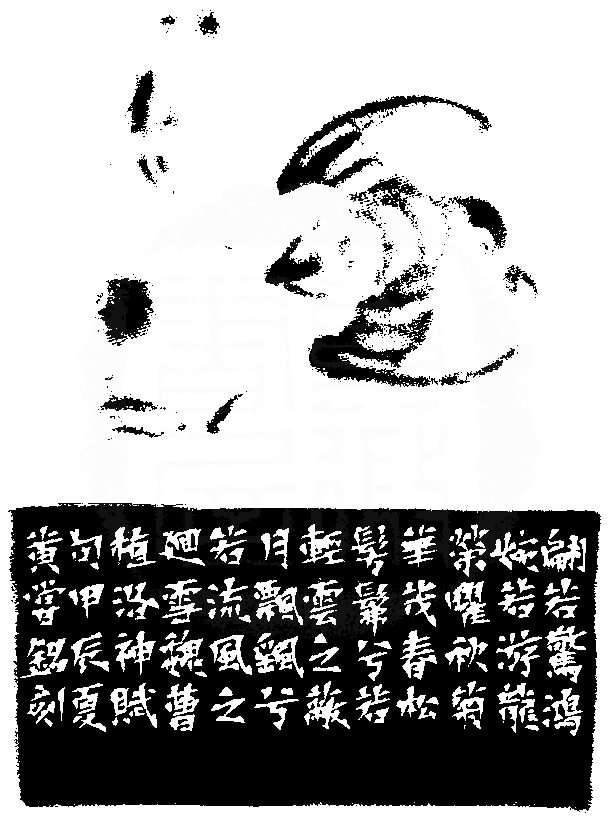 翩若驚鴻
婉若游龍
榮曜秋菊
華茂春松
髣髴兮若
輕雲之蔽
月飄飖兮
若流風之
廻雪魏曹
植洛神賦
句甲辰夏
黄嘗銘刻